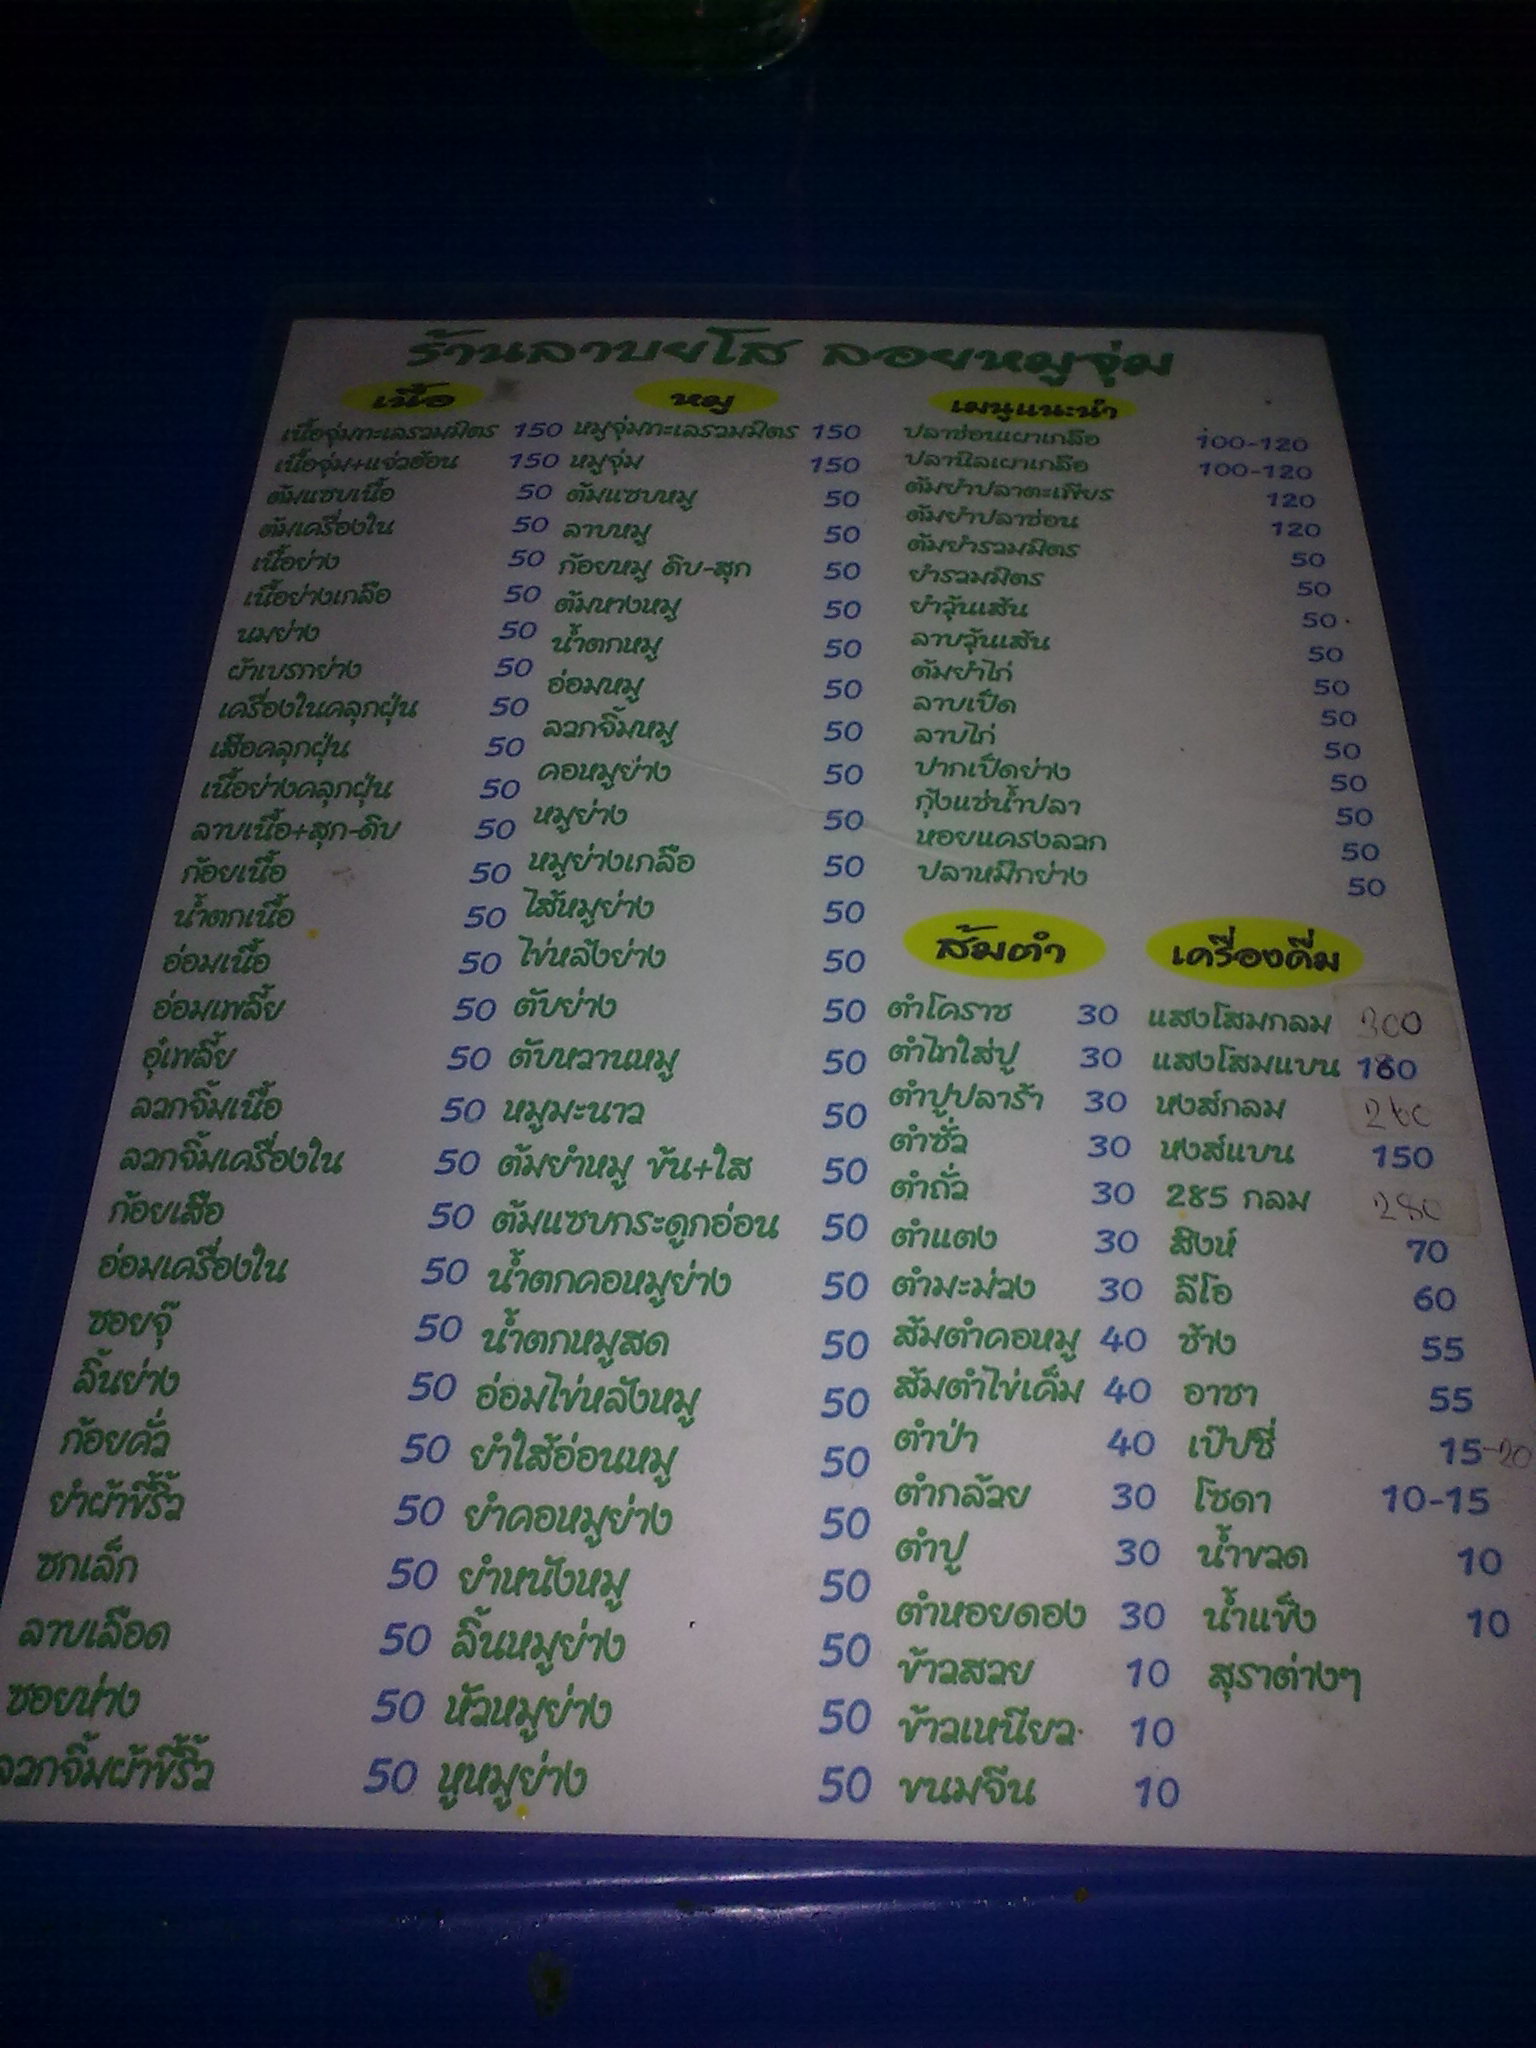 ร้านลาบยโส ลอยหมูจุ่ม
เนื้อ
เนื้อจุ่มทะเลรวมมิตร 150
เนื้อจุ่ม+แจ่วฮ้อน 150
ต้มแซบเนื้อ 50
ต้มเครื่องใน 50
เนื้อย่าง 50
เนื้อย่างเกลือ 50
นมย่าง 50
ผ้าเบรกย่าง 50
เครื่องในคลุกฝุ่น 50
เสือคลุกฝุ่น 50
เนื้อย่างคลุกฝุ่น 50
ลาบเนื้อ+สุก-ดิบ 50
ก้อยเนื้อ 50
น้ำตกเนื้อ 50
อ่อมเนื้อ 50
อ่อมเพลี้ย 50
อุ๋เพลี้ย 50
ลวกจิ้มเนื้อ 50
ลวกจิ้มเครื่องใน 50
ก้อยเสือ 50
อ่อมเครื่องใน 50
ซอยจุ๊ 50
ลิ้นย่าง 50
ก้อยคั่ว 50
ยำผ้าขี้ริ้ว 50
ซกเล็ก 50
ลาบเลือด 50
ซอยห่าง 50
ลวกจิ้มผ้าขี้ริ้ว 50
หมู
หมูจุ่มทะเลรวมมิตร 150
หมูจุ่ม 150
ต้มแซบหมู 50
ลาบหมู 50
ก้อยหมู ดิบ-สุก 50
ต้มหางหมู 50
น้ำตกหมู 50
อ่อมหมู 50
ลวกจิ้มหมู 50
คอหมูย่าง 50
หมูย่าง 50
หมูย่างเกลือ 50
ไส้หมูย่าง 50
ไข่หลังย่าง 50
ตับย่าง 50
ตับหวานหมู 50
หมูมะนาว 50
ต้มยำหมู ข้น+ใส 50
ต้มแซบกระดูกอ่อน 50
น้ำตกคอหมูย่าง 50
น้ำตกหมูสด 50
อ่อมไข่หลังหมู 50
ยำใส้อ่อนหมู 50
ยำคอหมูย่าง 50
ยำหนังหมู 50
ลิ้นหมูย่าง 50
หัวหมูย่าง 50
หูหมูย่าง 50
เมนูแนะนำ
ปลาช่อนเผาเกลือ 100-120
ปลานิลเผาเกลือ 100-120
ต้มยำปลาตะเพียร 120
ต้มยำปลาช่อน 120
ต้มยำรวมมิตร 50
ยำรวมมิตร 50
ยำวุ้นเส้น 50
ลาบวุ้นเส้น 50
ต้มยำไก่ 50
ลาบเป็ด 50
ลาบไก่ 50
ปากเป็ดย่าง 50
กุ้งแช่น้ำปลา 50
หอยแครงลวก 50
ปลาหมึกย่าง 50
ส้มตำ
ตำโคราช 30
ตำไทใส่ปู 30
ตำปูปลาร้า 30
ตำซั่ว 30
ตำถั่ว 30
ตำแตง 30
ตำมะม่วง 30
ส้มตำคอหมู 40
ส้มตำไข่เค็ม 40
ตำป่า 40
ตำกล้วย 30
ตำปู 30
ตำหอยดอง 30
ข้าวสวย 10
ข้าวเหนียว 10
ขนมจีน 10
เครื่องดื่ม
แสงโสมกลม 300
แสงโสมแบน 160
หงส์กลม 260
หงส์แบน 150
285 กลม 280
สิงห์ 70
ลีโอ 60
ช้าง 55
อาชา 55
เป๊ปซี่ 15-20
โซดา 10-15
น้ำขวด 10
น้ำแข็ง 10
สุราต่างๆ